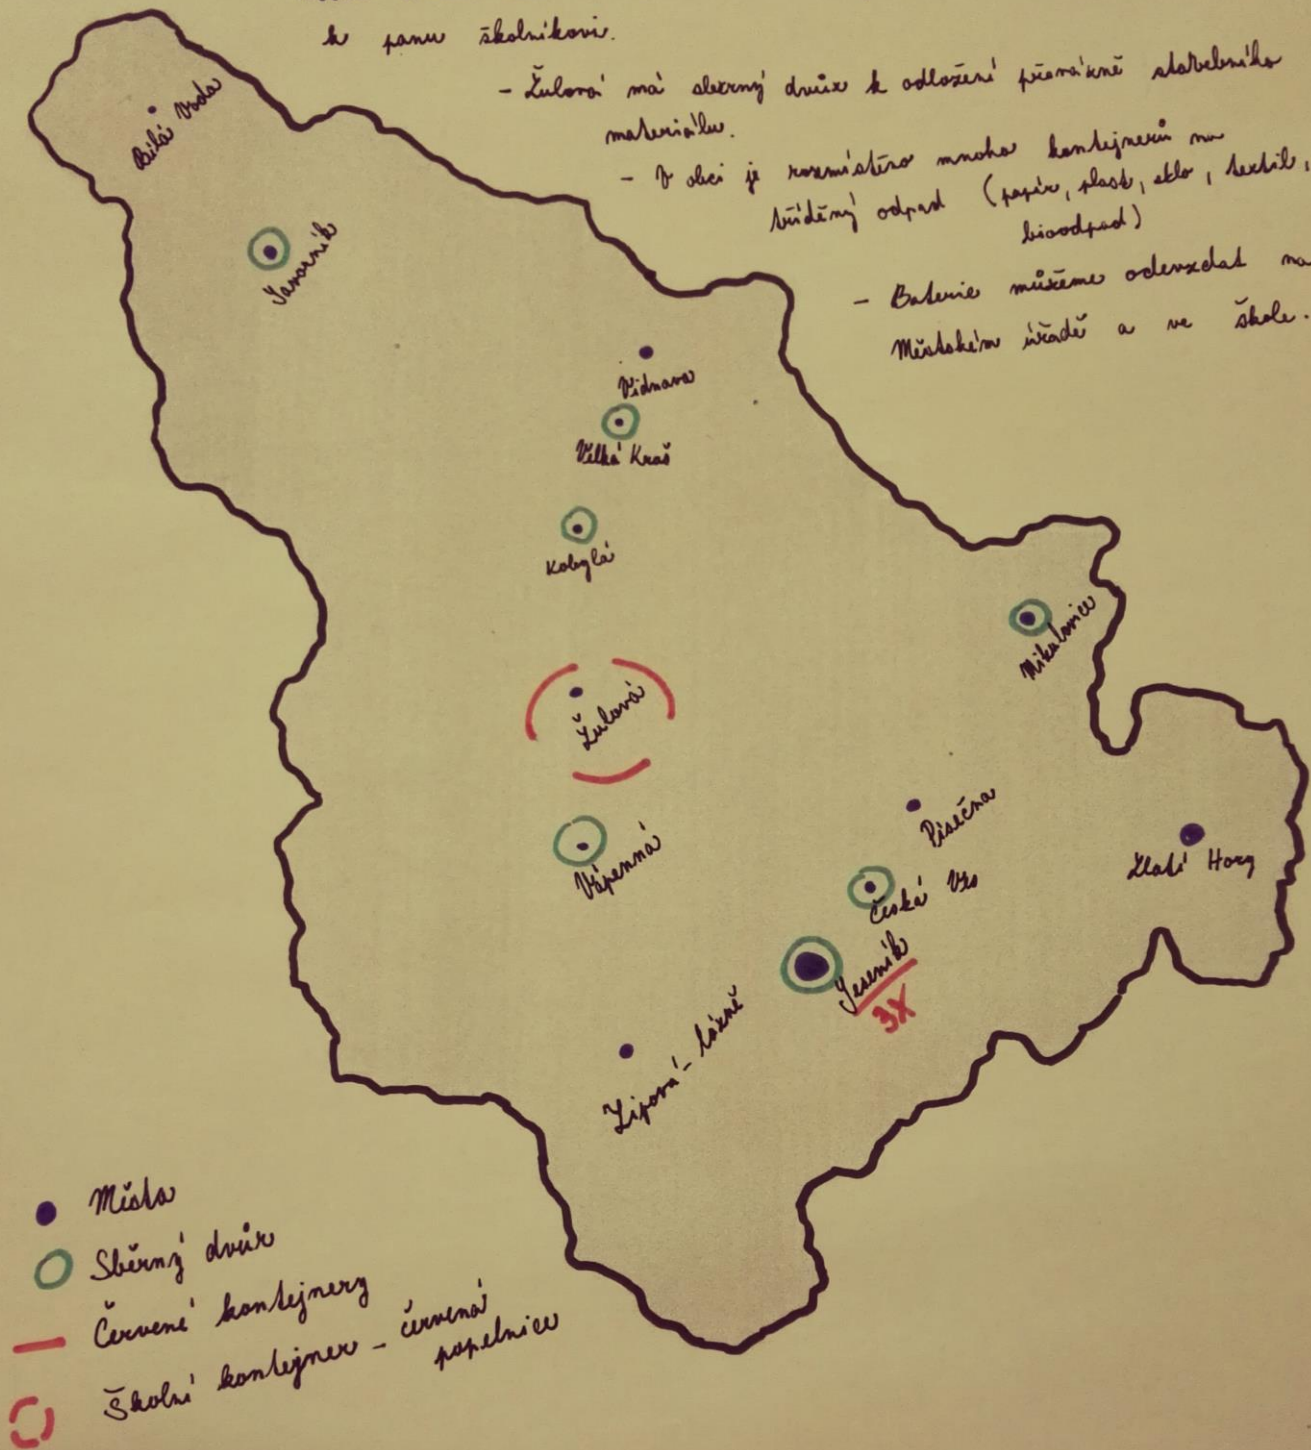 k panu školníkovi.
- Žulová má sběrný dvůr k odložení převážně stavebního
materiálu.
- V obci je rozmístěno mnoho kontejnerů na
tříděný odpad (papír, plast, sklo, textil,
bioodpad)
- Baterie můžeme odevzdat na
Městském úřadě a ve škole.
Bílá Voda
Javorník
Vidnava
Velká Kraš
Kobylá
Mikulovice
Žulová
Vápenná
Písečna
Zlaté Hory
Česká Ves
Jeseník
3X
Lipová - lázně
Místa
Sběrný dvůr
Červené kontejnery
Školní kontejner - červená
popelnice